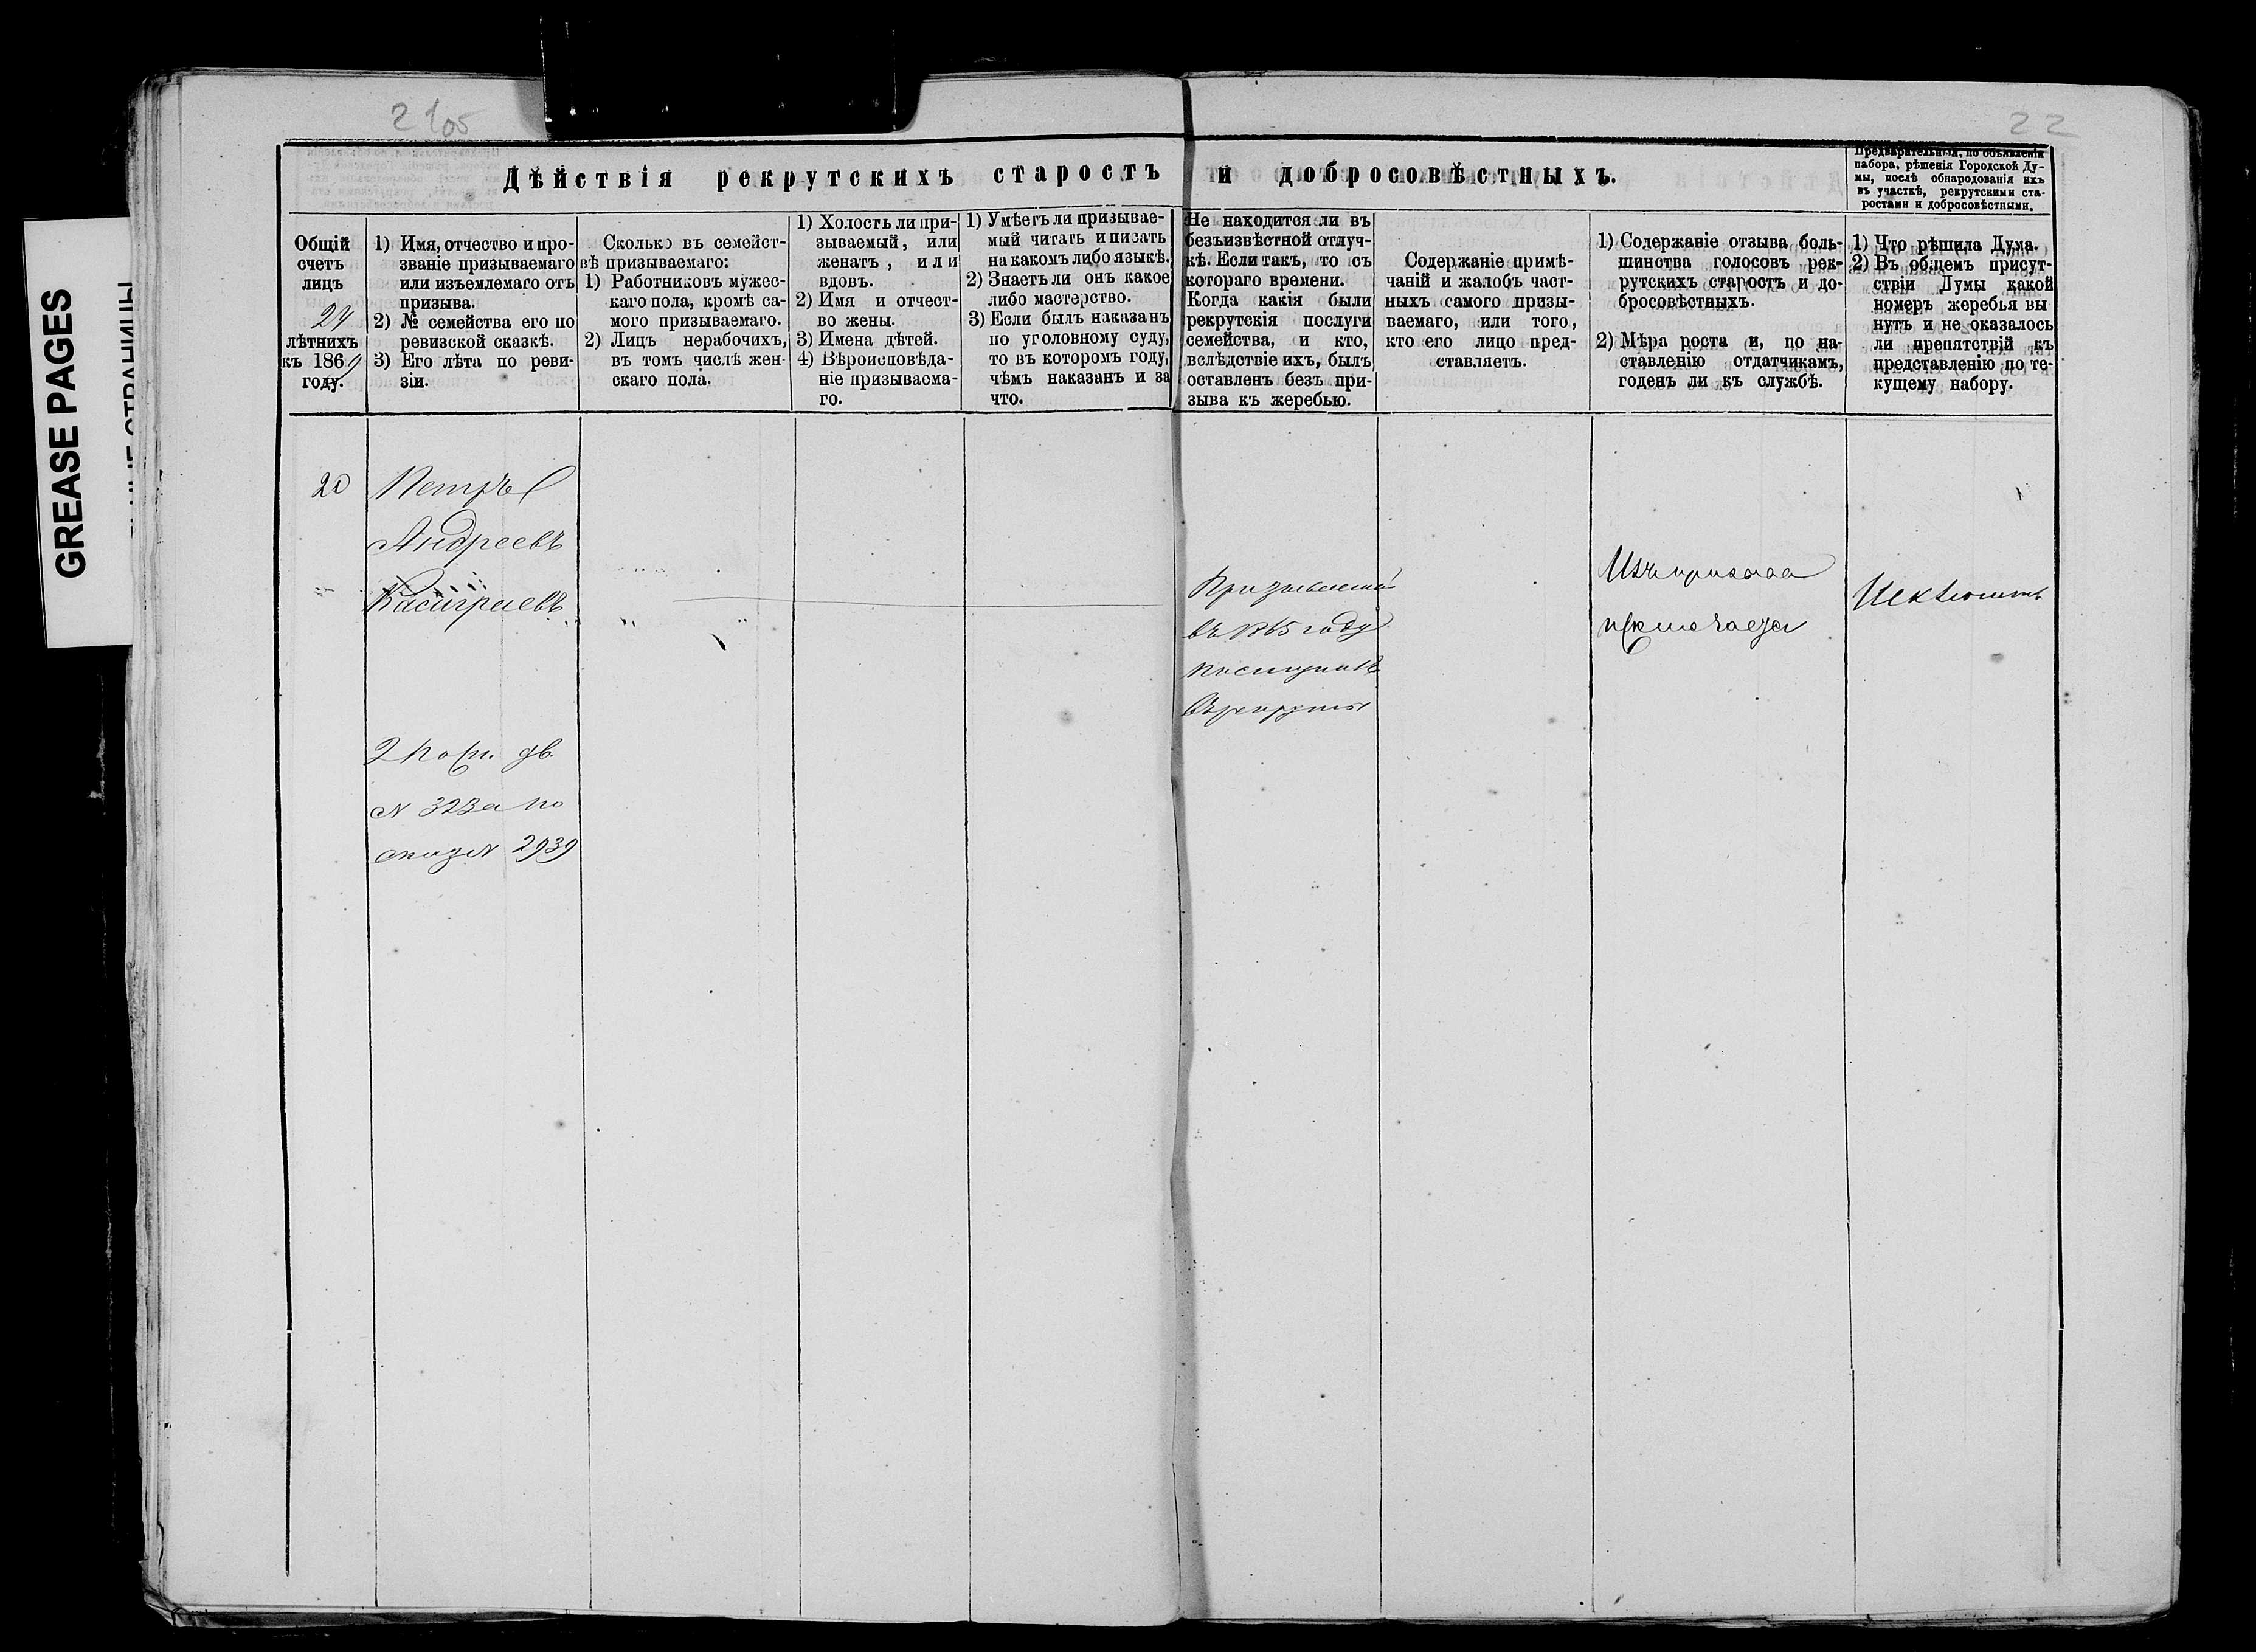 GREASE PAGES
22
Дѣйствія рекрутскихъ старостъ и добросовѣстныхъ.
Предварительныя, по объявленіи
набора, рѣшенія Городской Ду-
мы, послѣ обнародованія ихъ
въ участкѣ, рекрутскими ста-
ростами и добросовѣстными.
Общій
счетъ
лицъ
24
лѣтнихъ
къ 1869
году.
1) Имя, отчество и про-
званіе призываемаго
или изъемлемаго отъ
призыва.
2) № семейства его по
ревизской сказкѣ.
3) Его лѣта по реви-
зіи.
Сколько въ семейст-
вѣ призываемаго:
1) Работниковъ мужес-
каго пола, кромѣ са-
мого призываемаго.
2) Лицъ нерабочихъ,
въ томъ числѣ жен-
скаго пола.
1) Холостъ ли при-
зываемый, или
женатъ, или
вдовъ.
2) Имя и отчест-
во жены.
3) Имена дѣтей.
4) Вѣроисповѣда-
ніе призываема-
го.
1) Умѣетъ ли призывае-
мый читать и писать
на какомъ либо языкѣ.
2) Знаетъ ли онъ какое
либо мастерство.
3) Если былъ наказанъ
по уголовному суду,
то въ которомъ году,
чѣмъ наказанъ и за
что.
Не находится ли въ
безъизвѣстной отлуч-
кѣ. Если такъ, то съ
котораго времени.
Когда какія были
рекрутскія послуги
семейства, и кто,
вслѣдствіе ихъ, былъ
оставленъ безъ при-
зыва къ жеребью.
Содержаніе примѣ-
чаній и жалобъ част-
ныхъ самого призы-
ваемаго, или того,
кто его лицо пред-
ставляетъ.
1) Содержаніе отзыва боль-
шинства голосовъ рек-
рутскихъ старостъ и до-
бросовѣстныхъ.
2) Мѣра роста и, по на-
ставленію отдатчикамъ,
годенъ ли къ службѣ.
1) Что рѣшила Дума.
2) Въ общемъ присут-
ствіи Думы какой
номеръ жеребья вы
нутъ и не оказалось
ли препятствій къ
представленію по те-
кущему набору.
20
Петръ
Андреевъ
2 по
№ 323а по
2939
Призываемый
въ 1865 году
поступилъ
въ рекруты
Изъ призыва
исключается
Исключить